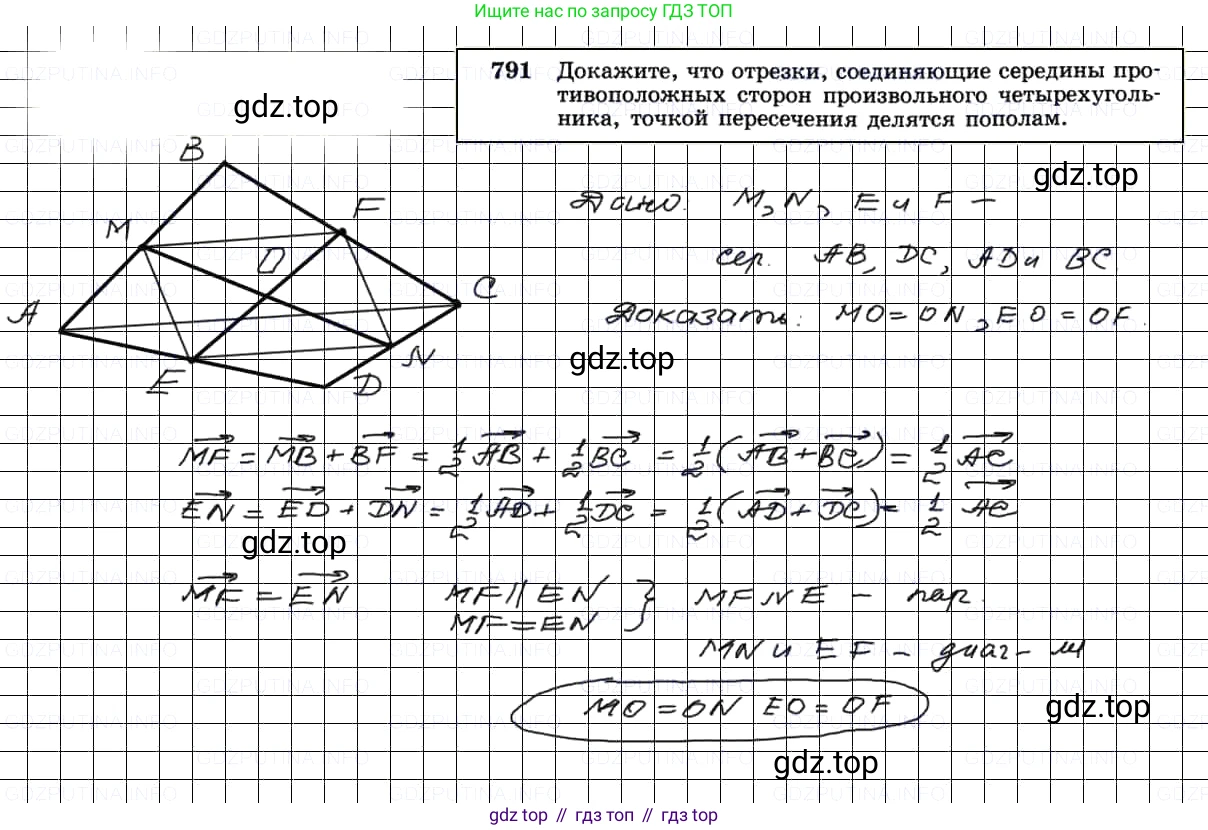 Ищите нас по запросу ГДЗ ТОП
791 Докажите, что отрезки, соединяющие середины про-
тивоположных сторон произвольного четырехуголь-
ника, точкой пересечения делятся пополам.
gdz.top
B
M
F
O
A
C
E
N
D
gdz.top
Дано: M, N, E и F –
сер. AB, DC, AD и BC.
Доказать: MO = ON, EO = OF.
gdz.top
MF = MB + BF = 1/2 AB + 1/2 BC = 1/2 (AB + BC) = 1/2 AC
EN = ED + DN = 1/2 AD + 1/2 DC = 1/2 (AD + DC) = 1/2 AC
gdz.top
MF = EN MF || EN } MFNE – пар.
MF = EN
MN и EF – диаг-ли
MO = ON EO = OF
gdz.top
gdz.top
gdz top // гдз топ // gdz top
GDZPUTINA.INFO